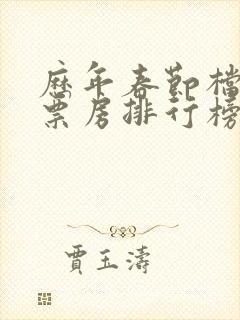 歷年春節檔
票房排行榜
賈玉濤